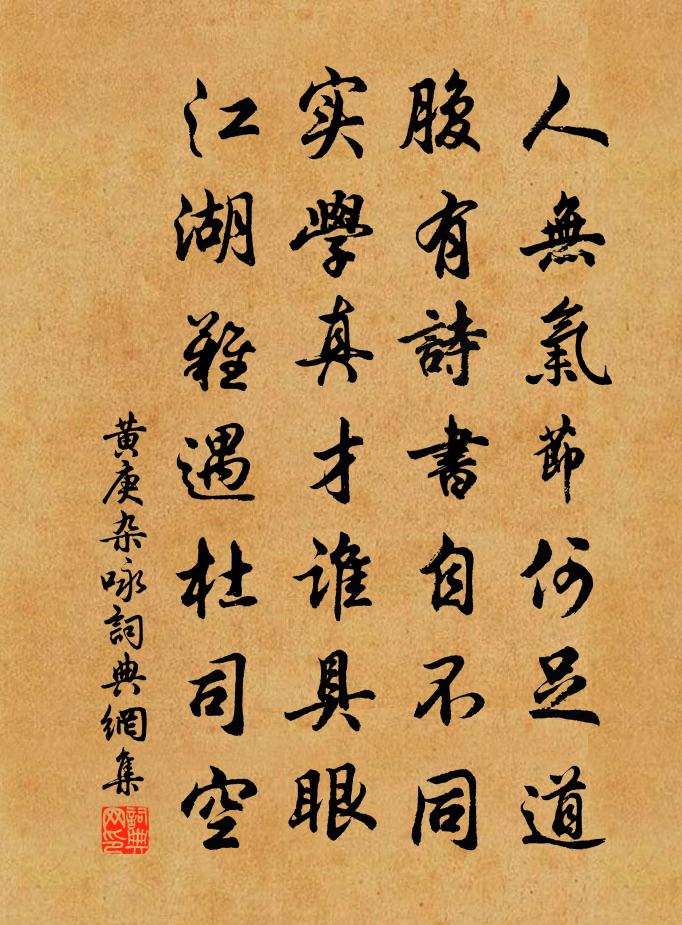 人無氣節何足道
腹有詩書自不同
实學真才誰具眼
江湖難遇杜司空
黄庚杂咏詞典網集
詞典网印